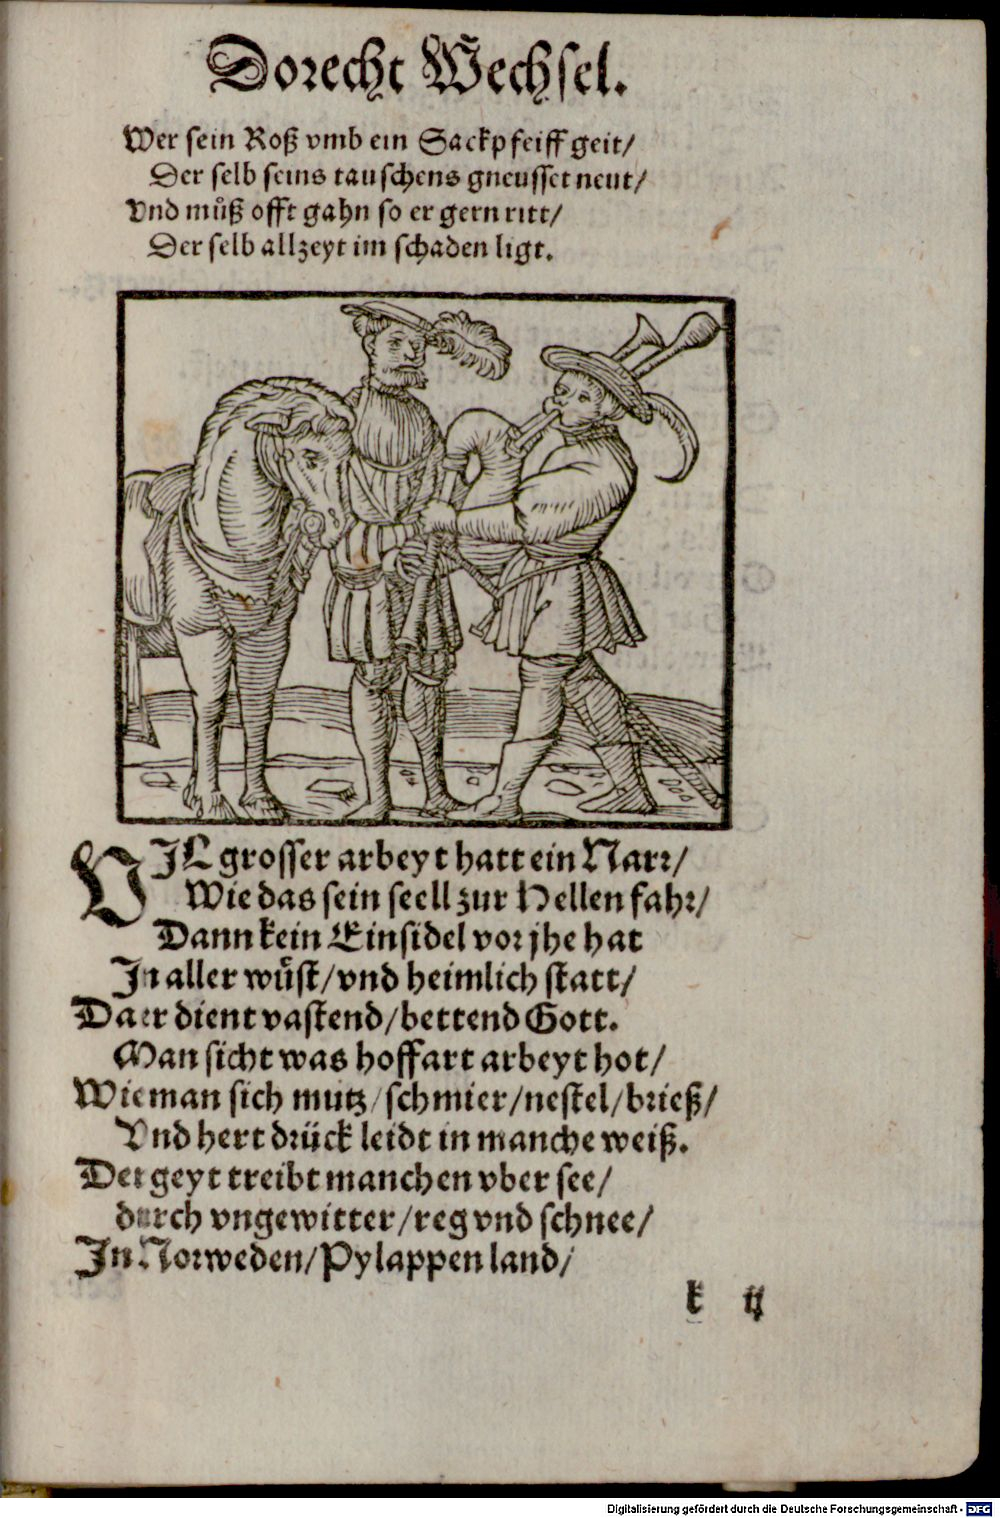 Dorecht Wechsel.
Wer sein Roß vmb ein Sackpfeiff geit/
Der selb seins tauschens gneusset neut/
Vnd můß offt gahn so er gern ritt/
Der selb allzeyt im schaden ligt.
VJL grosser arbeyt hatt ein Narr/
Wie das sein seell zur Hellen fahr/
Dann kein Einsidel vor jhe hat
In aller wůst/vnd heimlich statt/
Da er dient vastend/bettend Gott.
Man sicht was hoffart arbeyt hot/
Wie man sich mutz/schmier/nestel/brieß/
Vnd hert drück leidt in manche weiß.
Der geyt treibt manchen vber see/
durch vngewitter/reg vnd schnee/
In Norweden/Pylappen land/
k ij
Digitalisierung gefördert durch die Deutsche Forschungsgemeinschaft - DFG